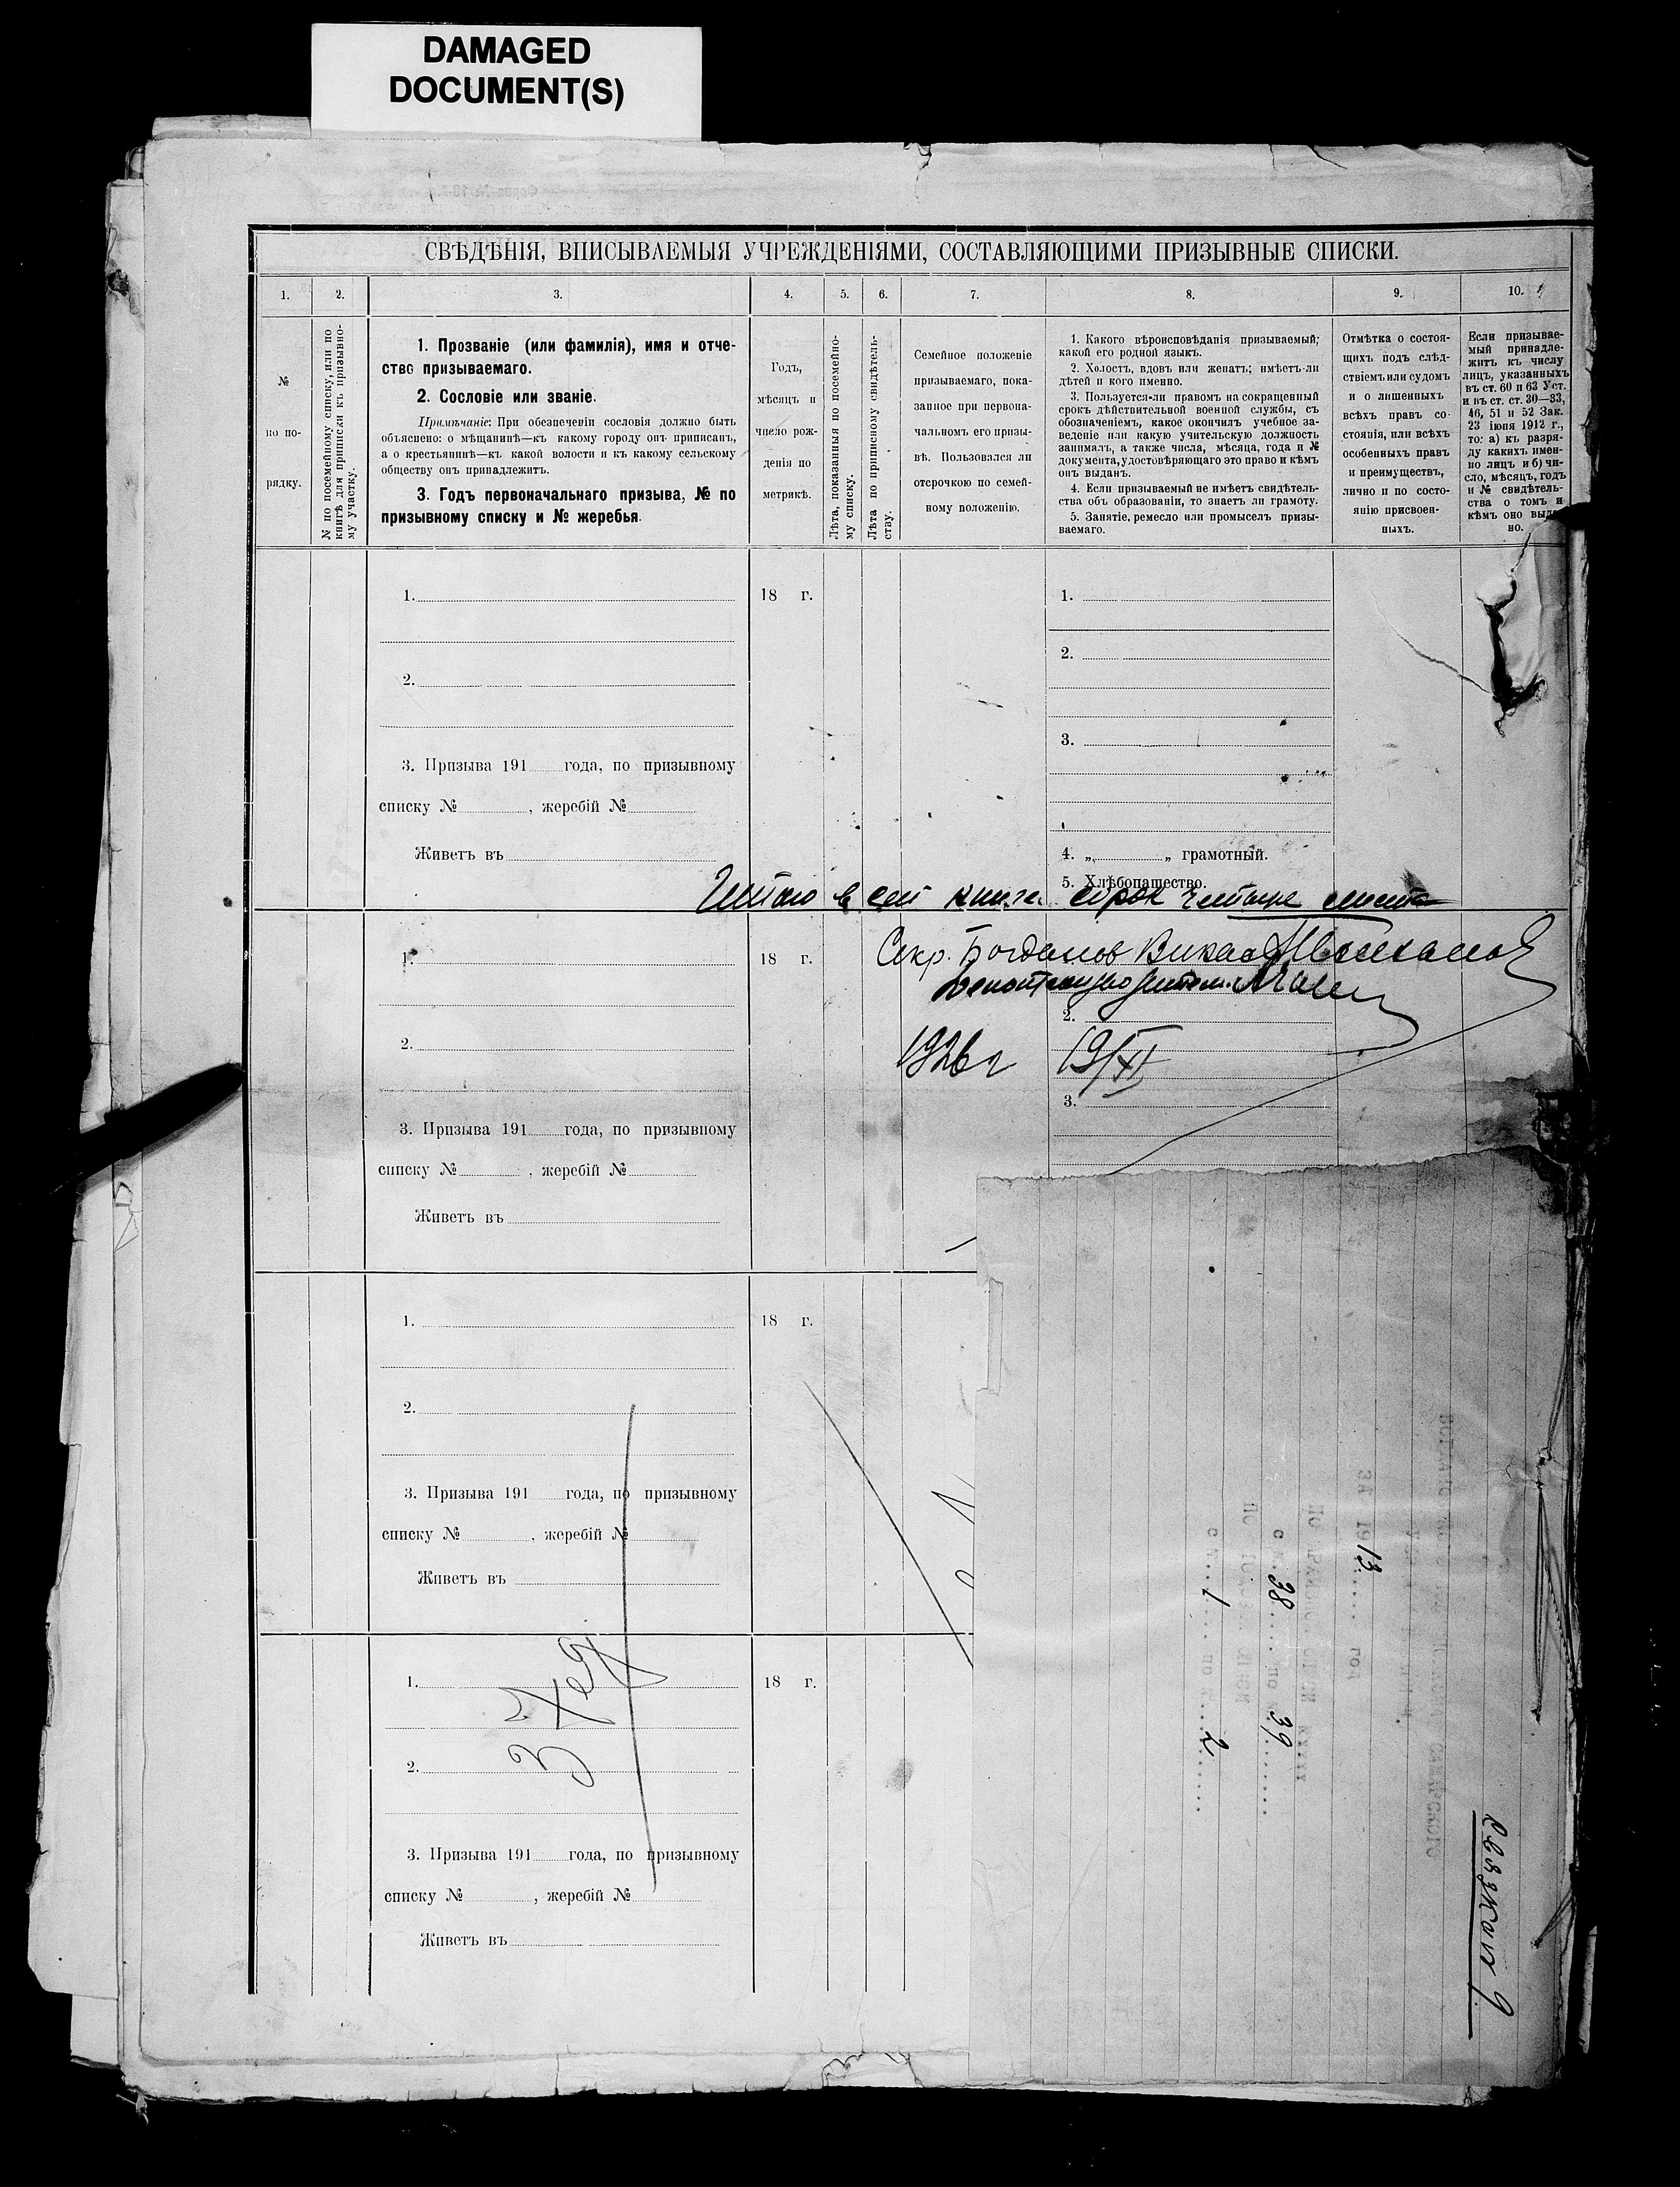 DAMAGED
DOCUMENT(S)
СВѢДѢНІЯ, ВПИСЫВАЕМЫЯ УЧРЕЖДЕНІЯМИ, СОСТАВЛЯЮЩИМИ ПРИЗЫВНЫЕ СПИСКИ.
1. 2. 3. 4. 5. 6. 7. 8. 9. 10.
№
по по-
рядку.
№ по посемейному списку, или по
книгѣ для приписки къ призывно-
му участку.
1. Прозваніе (или фамилія), имя и отче-
ство призываемаго.
2. Сословіе или званіе.
Примѣчаніе: При обозначеніи сословія должно быть
объяснено: о мѣщанинѣ—къ какому городу онъ приписанъ,
а о крестьянинѣ—къ какой волости и къ какому сельскому
обществу онъ принадлежитъ.
3. Годъ первоначальнаго призыва, № по
призывному списку и № жеребья.
Годъ,
мѣсяцъ и
число рож-
денія по
метрикѣ.
Лѣта, показанныя по посемейно-
му списку.
Лѣта по приписному свидѣтель-
ству.
Семейное положеніе
призываемаго, пока-
занное при первона-
чальномъ его призы-
вѣ. Пользовался ли
отсрочкою по семей-
ному положенію.
1. Какого вѣроисповѣданія призываемый;
какой его родной языкъ.
2. Холостъ, вдовъ или женатъ; имѣетъ-ли
дѣтей и кого именно.
3. Пользуется-ли правомъ на сокращенный
срокъ дѣйствительной военной службы, съ
обозначеніемъ, какое окончилъ учебное за-
веденіе или какую учительскую должность
занималъ, а также числа, мѣсяца, года и №
документа, удостовѣряющаго это право и кѣмъ
онъ выданъ.
4. Если призываемый не имѣетъ свидѣтель-
ства объ образованіи, то знаетъ ли грамоту.
5. Занятіе, ремесло или промыселъ призы-
ваемаго.
Отмѣтка о состоя-
щихъ подъ слѣд-
ствіемъ или судомъ
и о лишенныхъ
всѣхъ правъ со-
стоянія, или всѣхъ
особенныхъ правъ
и преимуществъ,
лично и по состо-
янію присвоен-
ныхъ.
Если призывае-
мый принадле-
житъ къ числу
лицъ, указанныхъ
въ ст. 60 и 63 Уст.
и въ ст. ст. 30—33,
46, 51 и 52 Зак.
23 іюня 1912 г.,
то: а) къ разря-
ду какихъ имен-
но лицъ и б) чи-
сло, мѣсяцъ, годъ
и № свидѣтель-
ства о томъ и
кѣмъ оно выда-
но.
1. 18 г. 1.
2.
2.
3.
3. Призыва 191 года, по призывному
списку № , жеребій №
Живетъ въ
4. „ „ грамотный.
5. Хлѣбопашество.
в сей книге сорок четыре листа
1. 18 г.
Секр. Богданов
2.
2.
1926 г 19/XI
3.
3. Призыва 191 года, по призывному
списку № , жеребій №
Живетъ въ
1. 18 г.
2.
3. Призыва 191 года, по призывному
списку № , жеребій №
Живетъ въ
1. 18 г.
2.
3. Призыва 191 года, по призывному
списку № , жеребій №
Живетъ въ
ЗА 1913 год
с 38 по 39
с 1 по 2